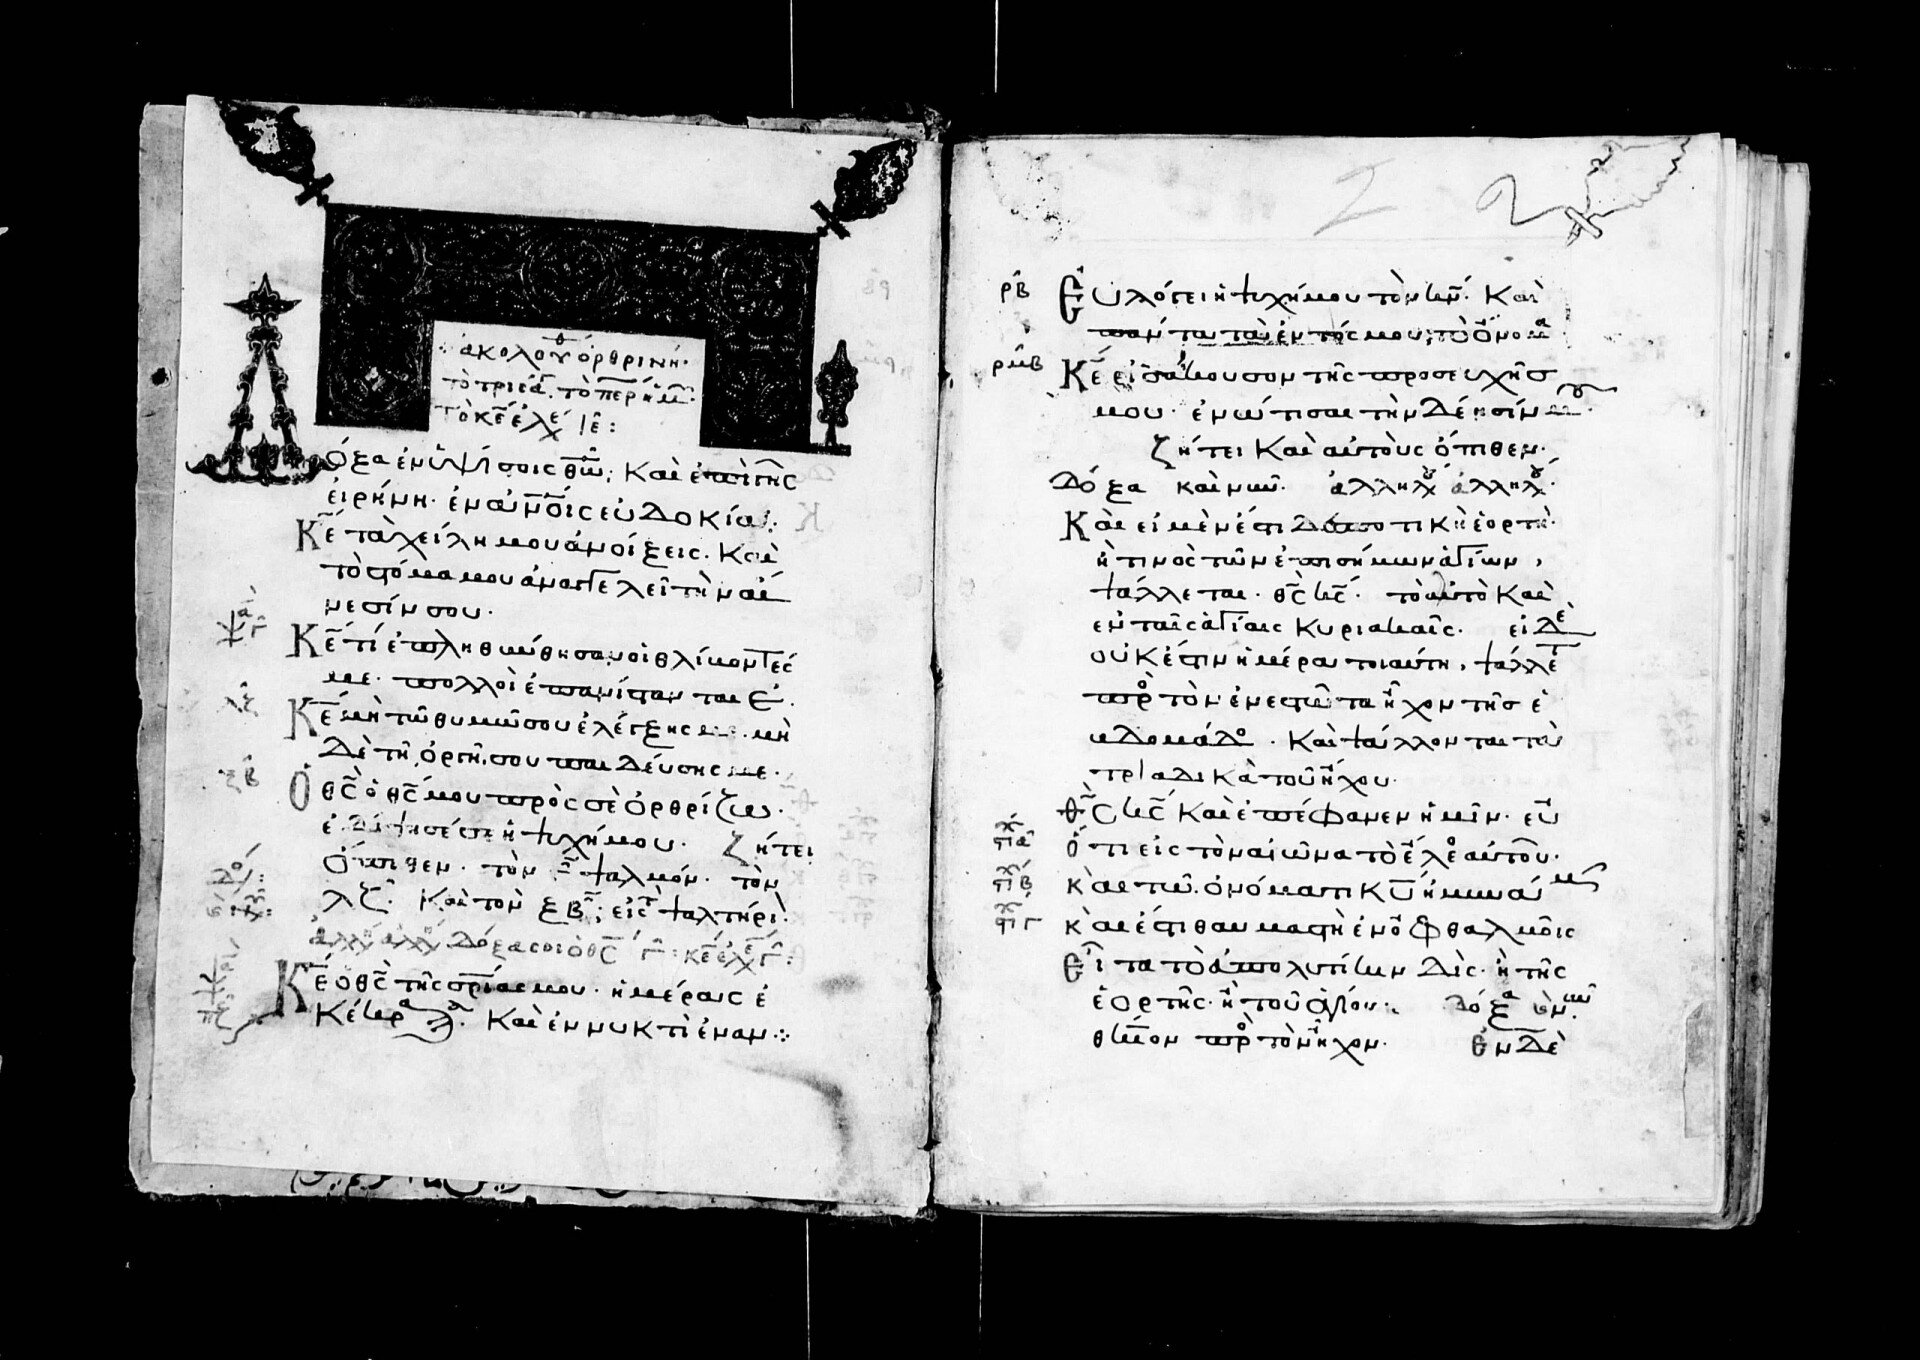 ἀκολουθ ὀρθρινή·
τὸ τρισά. τὸ περ ἡμ·
τὸ κε ἐλε ιε:
Δόξα ἐν ὑψίστοις θω· Καὶ ἐπὶ γῆς
εἰρήνη· ἐν ἀνοις εὐδοκία:
Κε τὰ χείλη μου ἀνοίξεις· Καὶ
τὸ στόμα μου ἀναγγελεῖ τὴν αἴ
νεσίν σου·
ψα γ
Κε τί ἐπληθύνθησαν οἱ θλίβοντές
με· πολλοὶ ἐπανίστανται ἐ.
λζ
Κε μὴ τῶ θυμῶ σου ἐλέγξης με· μὴ
δὲ τῆ ὀργῆ σου παιδεύσης με·
ξβ
Ὁ θς ὁ θς μου πρὸς σὲ ὀρθρίζω·
ἐδίψησέ σε ἡ ψυχή μου· ζήτει
ὄπιθεν· τὸν γ ψαλμόν· τὸν
λζ· Καὶ τὸν ξβ· εἰς τ ψαλτήρι·
Δόξα σοι ὁ θς γ: κε ἐλε γ:
Κε ὁ θς τῆς σρίας μου· ἡμέρας ἐ
κέκρα Καὶ ἐν νυκτὶ ἐναν·:
2
ρβ
Εὐλόγει ἡ ψυχή μου τὸν κν· Καὶ
πάντα τὰ ἐντός μου, τὸ ὄνομα
ρμβ
Κε εἰσάκουσον τῆς προσευχῆς
μου· ἐνώτισαι τὴν δέησίν μου·
ζήτει Καὶ αὐτοὺς ὄπιθεν·
Δόξα καὶ νῦν· ἀλληλου ἀλληλου·
Καὶ εἰ μὲν ἔστι Δεσποτικὴ ἑορτὴ·
ἢ τινὸς τῶν ἐπισήμων ἁγίων,
ψάλλεται· θς κς· τὸ αὐτὸ Καὶ
ἐν ταῖς ἁγίαις Κυριακαῖς· εἰ δὲ
οὐκ ἔστιν ἡμέρα τοιαύτη, ψάλλετ
πρὸ τὸν ἐνεστῶτα ἦχον τῆς ἑ
βδομάδο· Καὶ ψάλλονται τὰ
τριαδικὰ τοῦ ἤχου·
Θς κς Καὶ ἐπέφανεν ἡμῖν· εὐ
στι α
Ὅτι εἰς τὸν αἰῶνα τὸ ἔλεο αὐτοῦ·
στι β
Καὶ τῶ ὀνόματι Κυ ἠμυνάμ
στι γ
Καὶ ἔστι θαυμαστὴ ἐν ὀφθαλμοῖς
Εἶτα τὸ ἀπολυτίκιον Δὶς· ἢ τῆς
ἑορτῆς· ἢ τοῦ ἁγίου: Δόξα νῦν.
θκίον πρὸ τὸν ἦχον· Ἐν δὲ